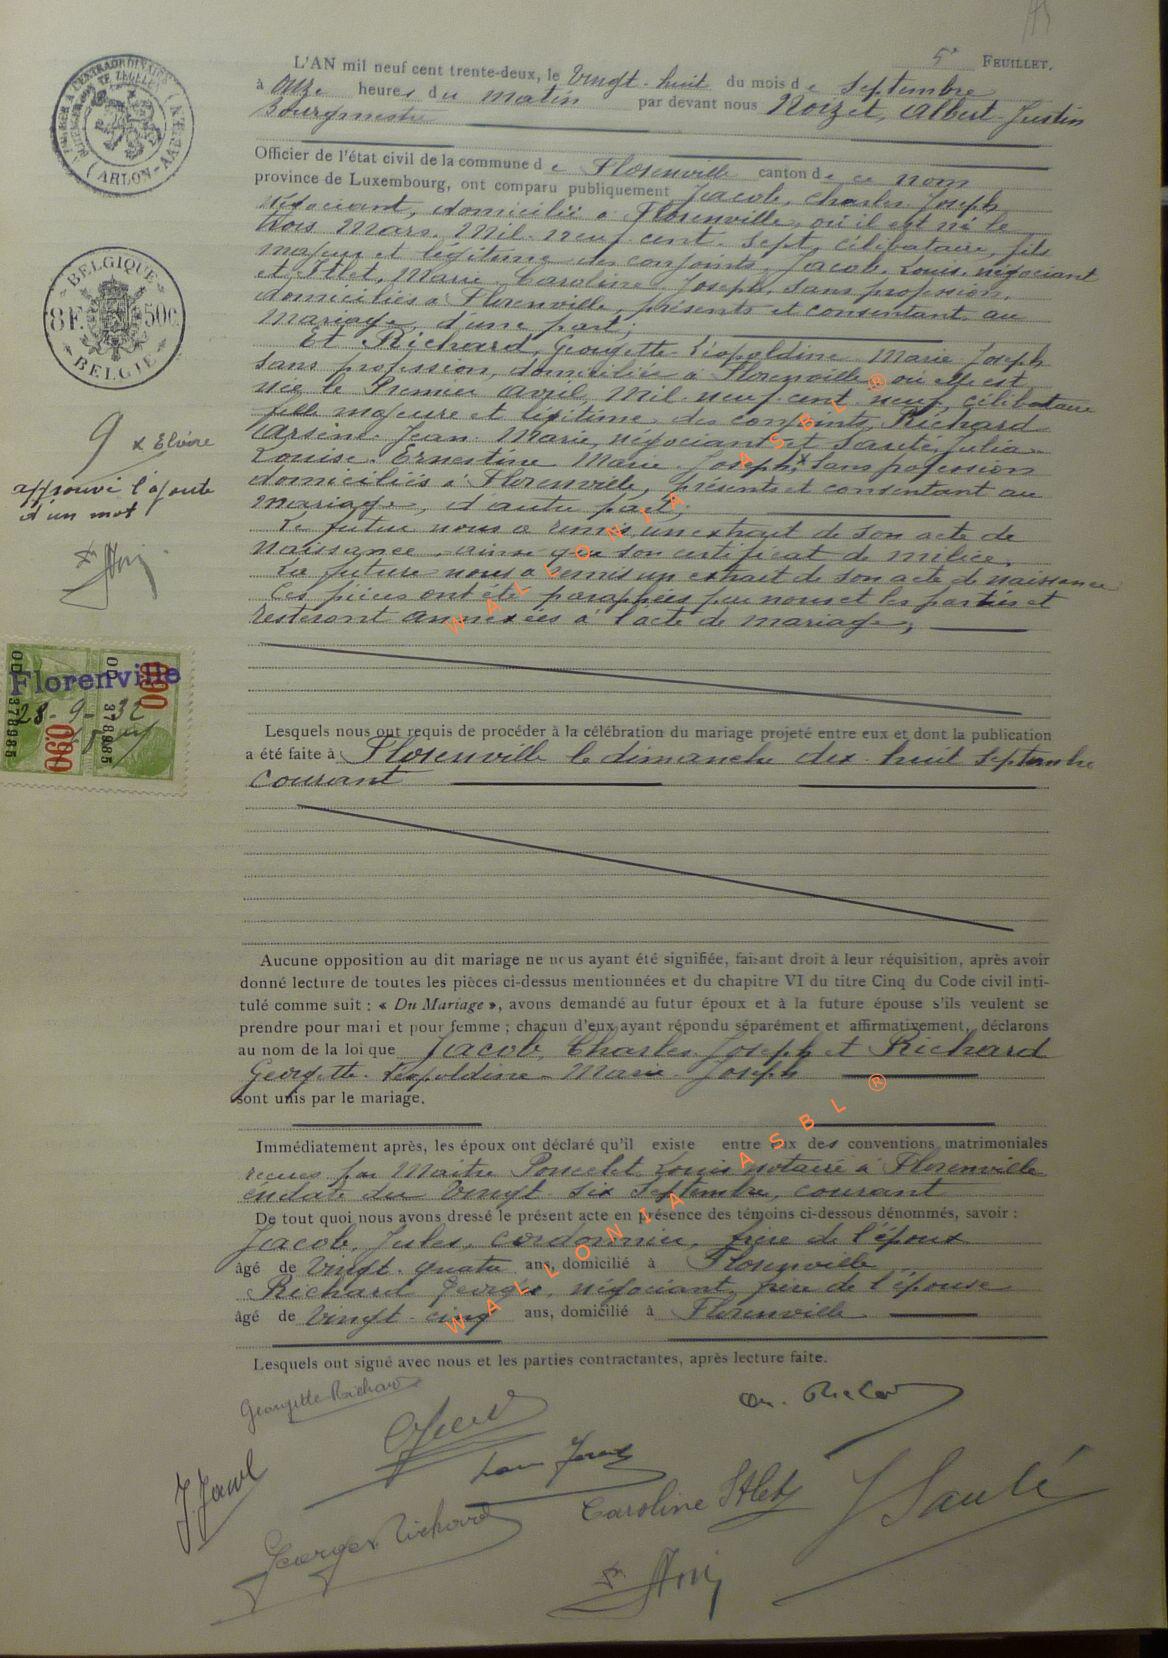 5e FEUILLET.
L'AN mil neuf cent trente-deux, le Vingt-huit du mois de Septembre
à onze heures du matin par devant nous Noizet, Albert-Justin
Bourgmestre
Officier de l'état civil de la commune de Florenville canton de ce nom
province de Luxembourg, ont comparu publiquement Jacob, Charles Joseph
négociant, domicilié à Florenville, où il est né le
trois Mars, Mil-neuf-cent-sept, célibataire, fils
majeur et légitime des conjoints, Jacob, Louis négociant
et Itlet, Marie Caroline Joseph, sans profession,
domiciliés à Florenville, présents et consentant au
mariage, d'une part;
Et Richard, Georgette-Léopoldine-Marie-Joseph
sans profession, domiciliée à Florenville où elle est
née le Premier Avril, Mil-neuf-cent-neuf, célibataire
fille majeure et légitime des conjoints, Richard
Arsène-Jean-Marie, négociant et Sauté, Julia-
Louise-Ernestine-Marie-Joseph x, sans profession
domiciliés à Florenville, présents et consentant au
mariage, d'autre part;
Le futur nous a remis un extrait de son acte de
naissance ainsi que son certificat de milice,
La future nous a remis un extrait de son acte de naissance
Ces pièces ont été paraphées par nous et les parties et
resteront annexées à l'acte de mariage;
BELGIQUE
8F. 50c
BELGIE
ARLON-AARLEN
9 x Elvire
approuvé l'ajoute
d'un mot
Florenville
28-9-32
OD 378985
OD 378985
060
060
Lesquels nous ont requis de procéder à la célébration du mariage projeté entre eux et dont la publication
a été faite à Florenville le dimanche dix-huit Septembre
courant
Aucune opposition au dit mariage ne nous ayant été signifiée, faisant droit à leur réquisition, après avoir
donné lecture de toutes les pièces ci-dessus mentionnées et du chapitre VI du titre Cinq du Code civil inti-
tulé comme suit : « Du Mariage », avons demandé au futur époux et à la future épouse s'ils veulent se
prendre pour mari et pour femme ; chacun d'eux ayant répondu séparément et affirmativement, déclarons
au nom de la loi que Jacob, Charles Joseph et Richard
Georgette-Léopoldine-Marie-Joseph
sont unis par le mariage.
Immédiatement après, les époux ont déclaré qu'il existe entre eux des conventions matrimoniales
reçues par Maître Poncelet Louis notaire à Florenville
en date du Vingt-six Septembre, courant
De tout quoi nous avons dressé le présent acte en présence des témoins ci-dessous dénommés, savoir :
Jacob, Jules, cordonnier, frère de l'époux
âgé de Vingt-quatre ans, domicilié à Florenville
Richard Georges, négociant, frère de l'épouse
âgé de Vingt-cinq ans, domicilié à Florenville
Lesquels ont signé avec nous et les parties contractantes, après lecture faite.
Georgette Richard
J Jacob
Georges Richard
Caroline Itlet
J Sauté
WALLONIA ASBL ®
WALLONIA ASBL ®